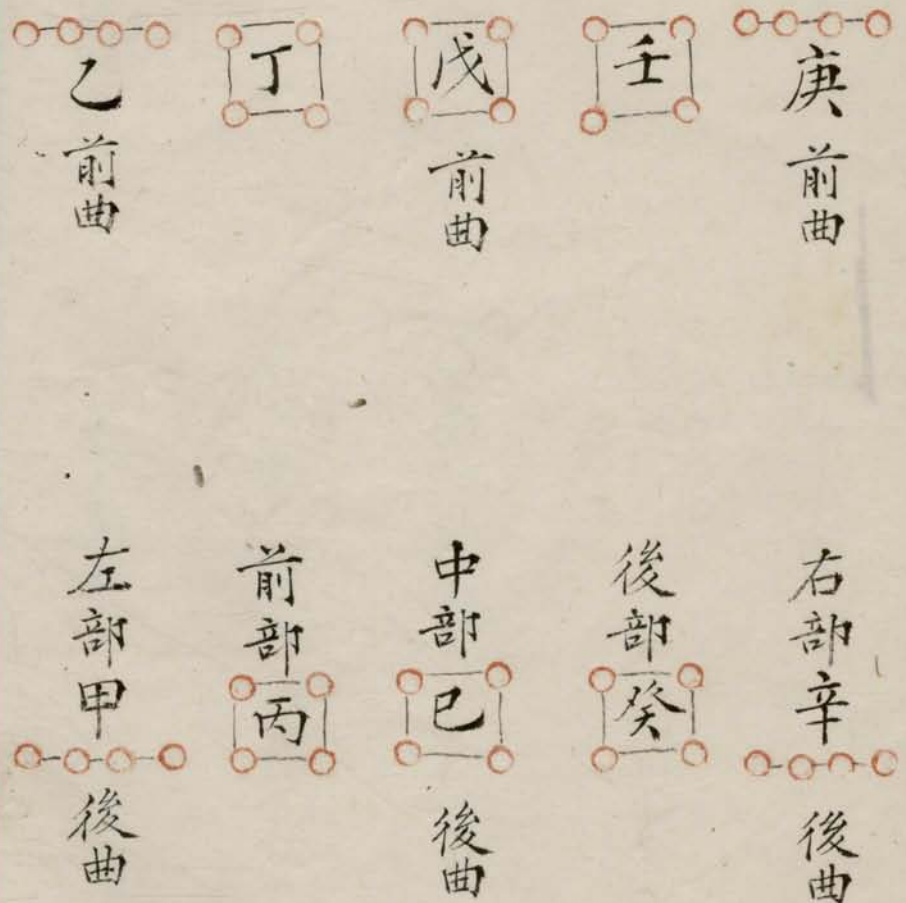 庚
前曲
壬
戊
前曲
丁
乙
前曲
右部辛
後曲
後部癸
中部巳
後曲
前部丙
左部甲
後曲